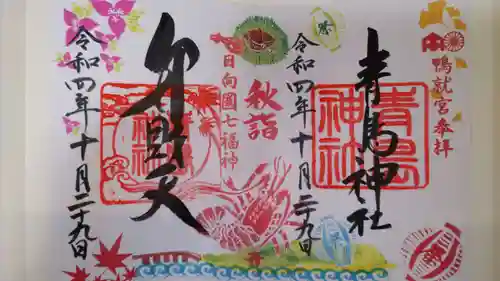 鴨就宮奉拝
青島神社
青島神社
令和四年十月二十九日
秋詣
日向國七福神
弁財天
令和四年十月二十九日